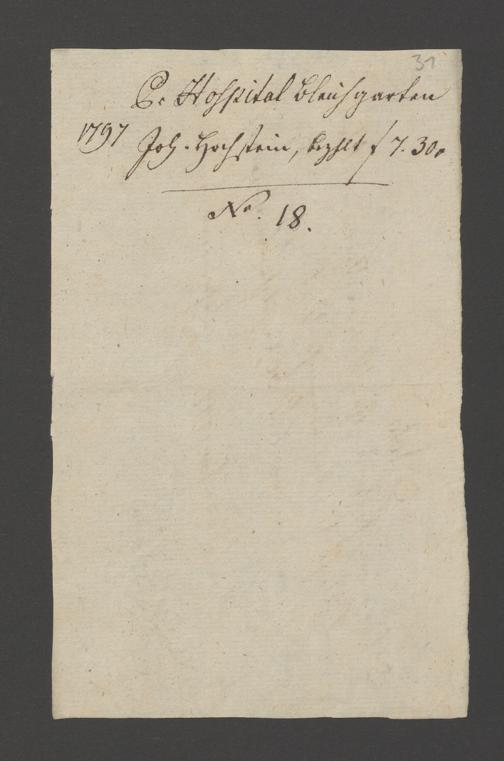 31
Pr Hospital Bleichgarten
1797 Joh. Hochstein, bezhlt f 7. 30.
No. 18.